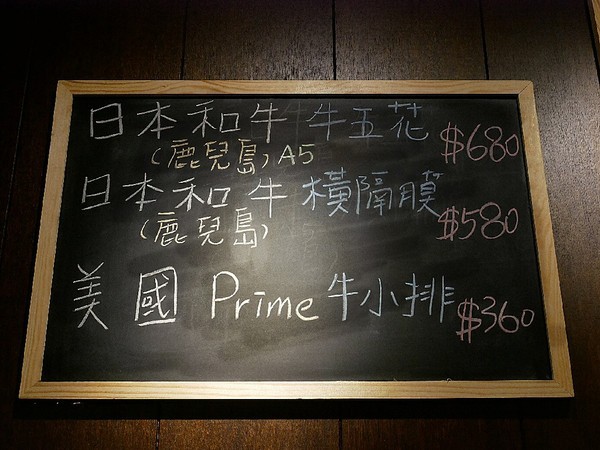 日本和牛 牛五花 $680
(鹿兒島) A5
日本和牛 橫隔膜 $580
(鹿兒島)
美國 Prime 牛小排 $360